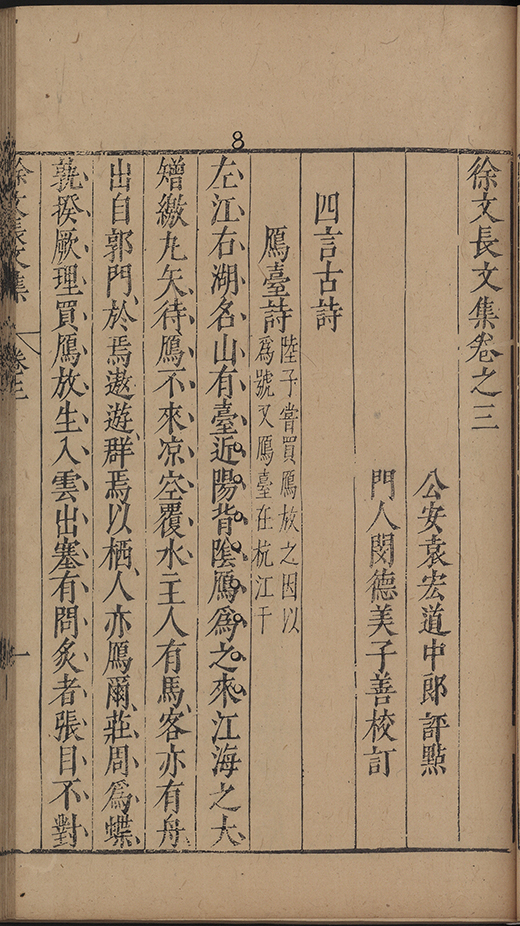 8
徐文長文集卷之三
公安袁宏道中郎評點
門人閔德美子善校訂
四言古詩
鴈臺詩
陸子嘗買鴈放之因以
爲號又鴈臺在杭江干
左江右湖名山有臺近陽背陰鴈爲之來江海之大
矰繳九矢待鴈不來凉空覆水主人有馬客亦有舟
出自郭門於焉遨遊群焉以栖人亦鴈爾莊周爲蝶
孰揆厥理買鴈放生入雲出塞有問炙者張目不對
徐文長文集 卷三 一